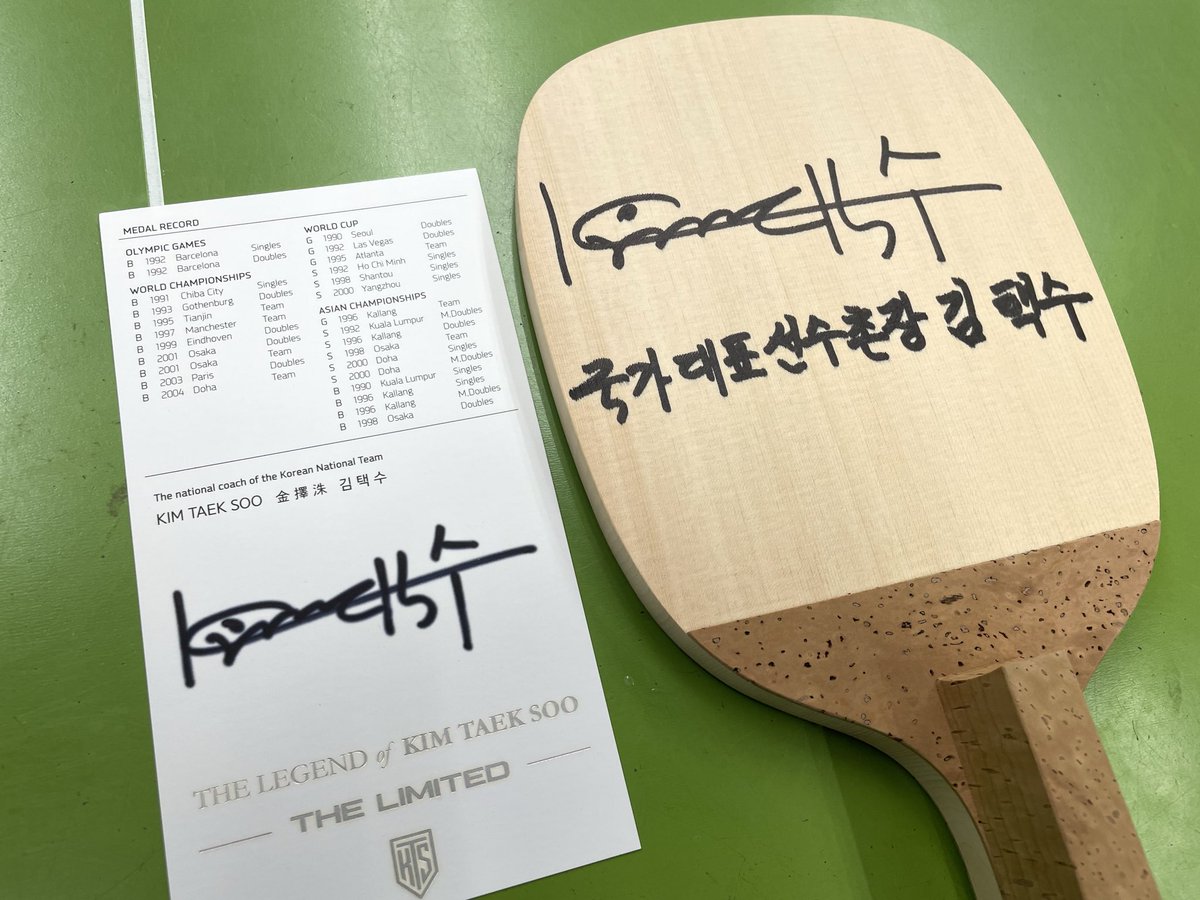 MEDAL RECORD
OLYMPIC GAMES
B 1992 Barcelona Singles
B 1992 Barcelona Doubles
WORLD CHAMPIONSHIPS
B 1991 Chiba City Singles
B 1993 Gothenburg Doubles
B 1995 Tianjin Team
B 1997 Manchester
B 1999 Eindhoven Doubles
B 2001 Osaka Doubles
B 2001 Osaka Team
B 2003 Paris Doubles
B 2004 Doha Team
WORLD CUP
G 1990 Seoul Doubles
G 1992 Las Vegas
G 1995 Atlanta Team
S 1992 Ho Chi Minh Singles
S 1998 Shantou Singles
S 2000 Yangzhou Singles
ASIAN CHAMPIONSHIPS
G 1996 Kallang Team
S 1992 Kuala Lumpur M.Doubles
S 1996 Kallang Doubles
S 1998 Osaka Team
S 2000 Doha Singles
S 2000 Doha M.Doubles
B 1990 Kuala Lumpur Singles
B 1996 Kallang Singles
B 1996 Kallang M.Doubles
B 1998 Osaka Doubles
The national coach of the Korean National Team
KIM TAEK SOO 金擇洙 김택수
THE LEGEND of KIM TAEK SOO
THE LIMITED
KTS
국가대표선수촌장 김택수